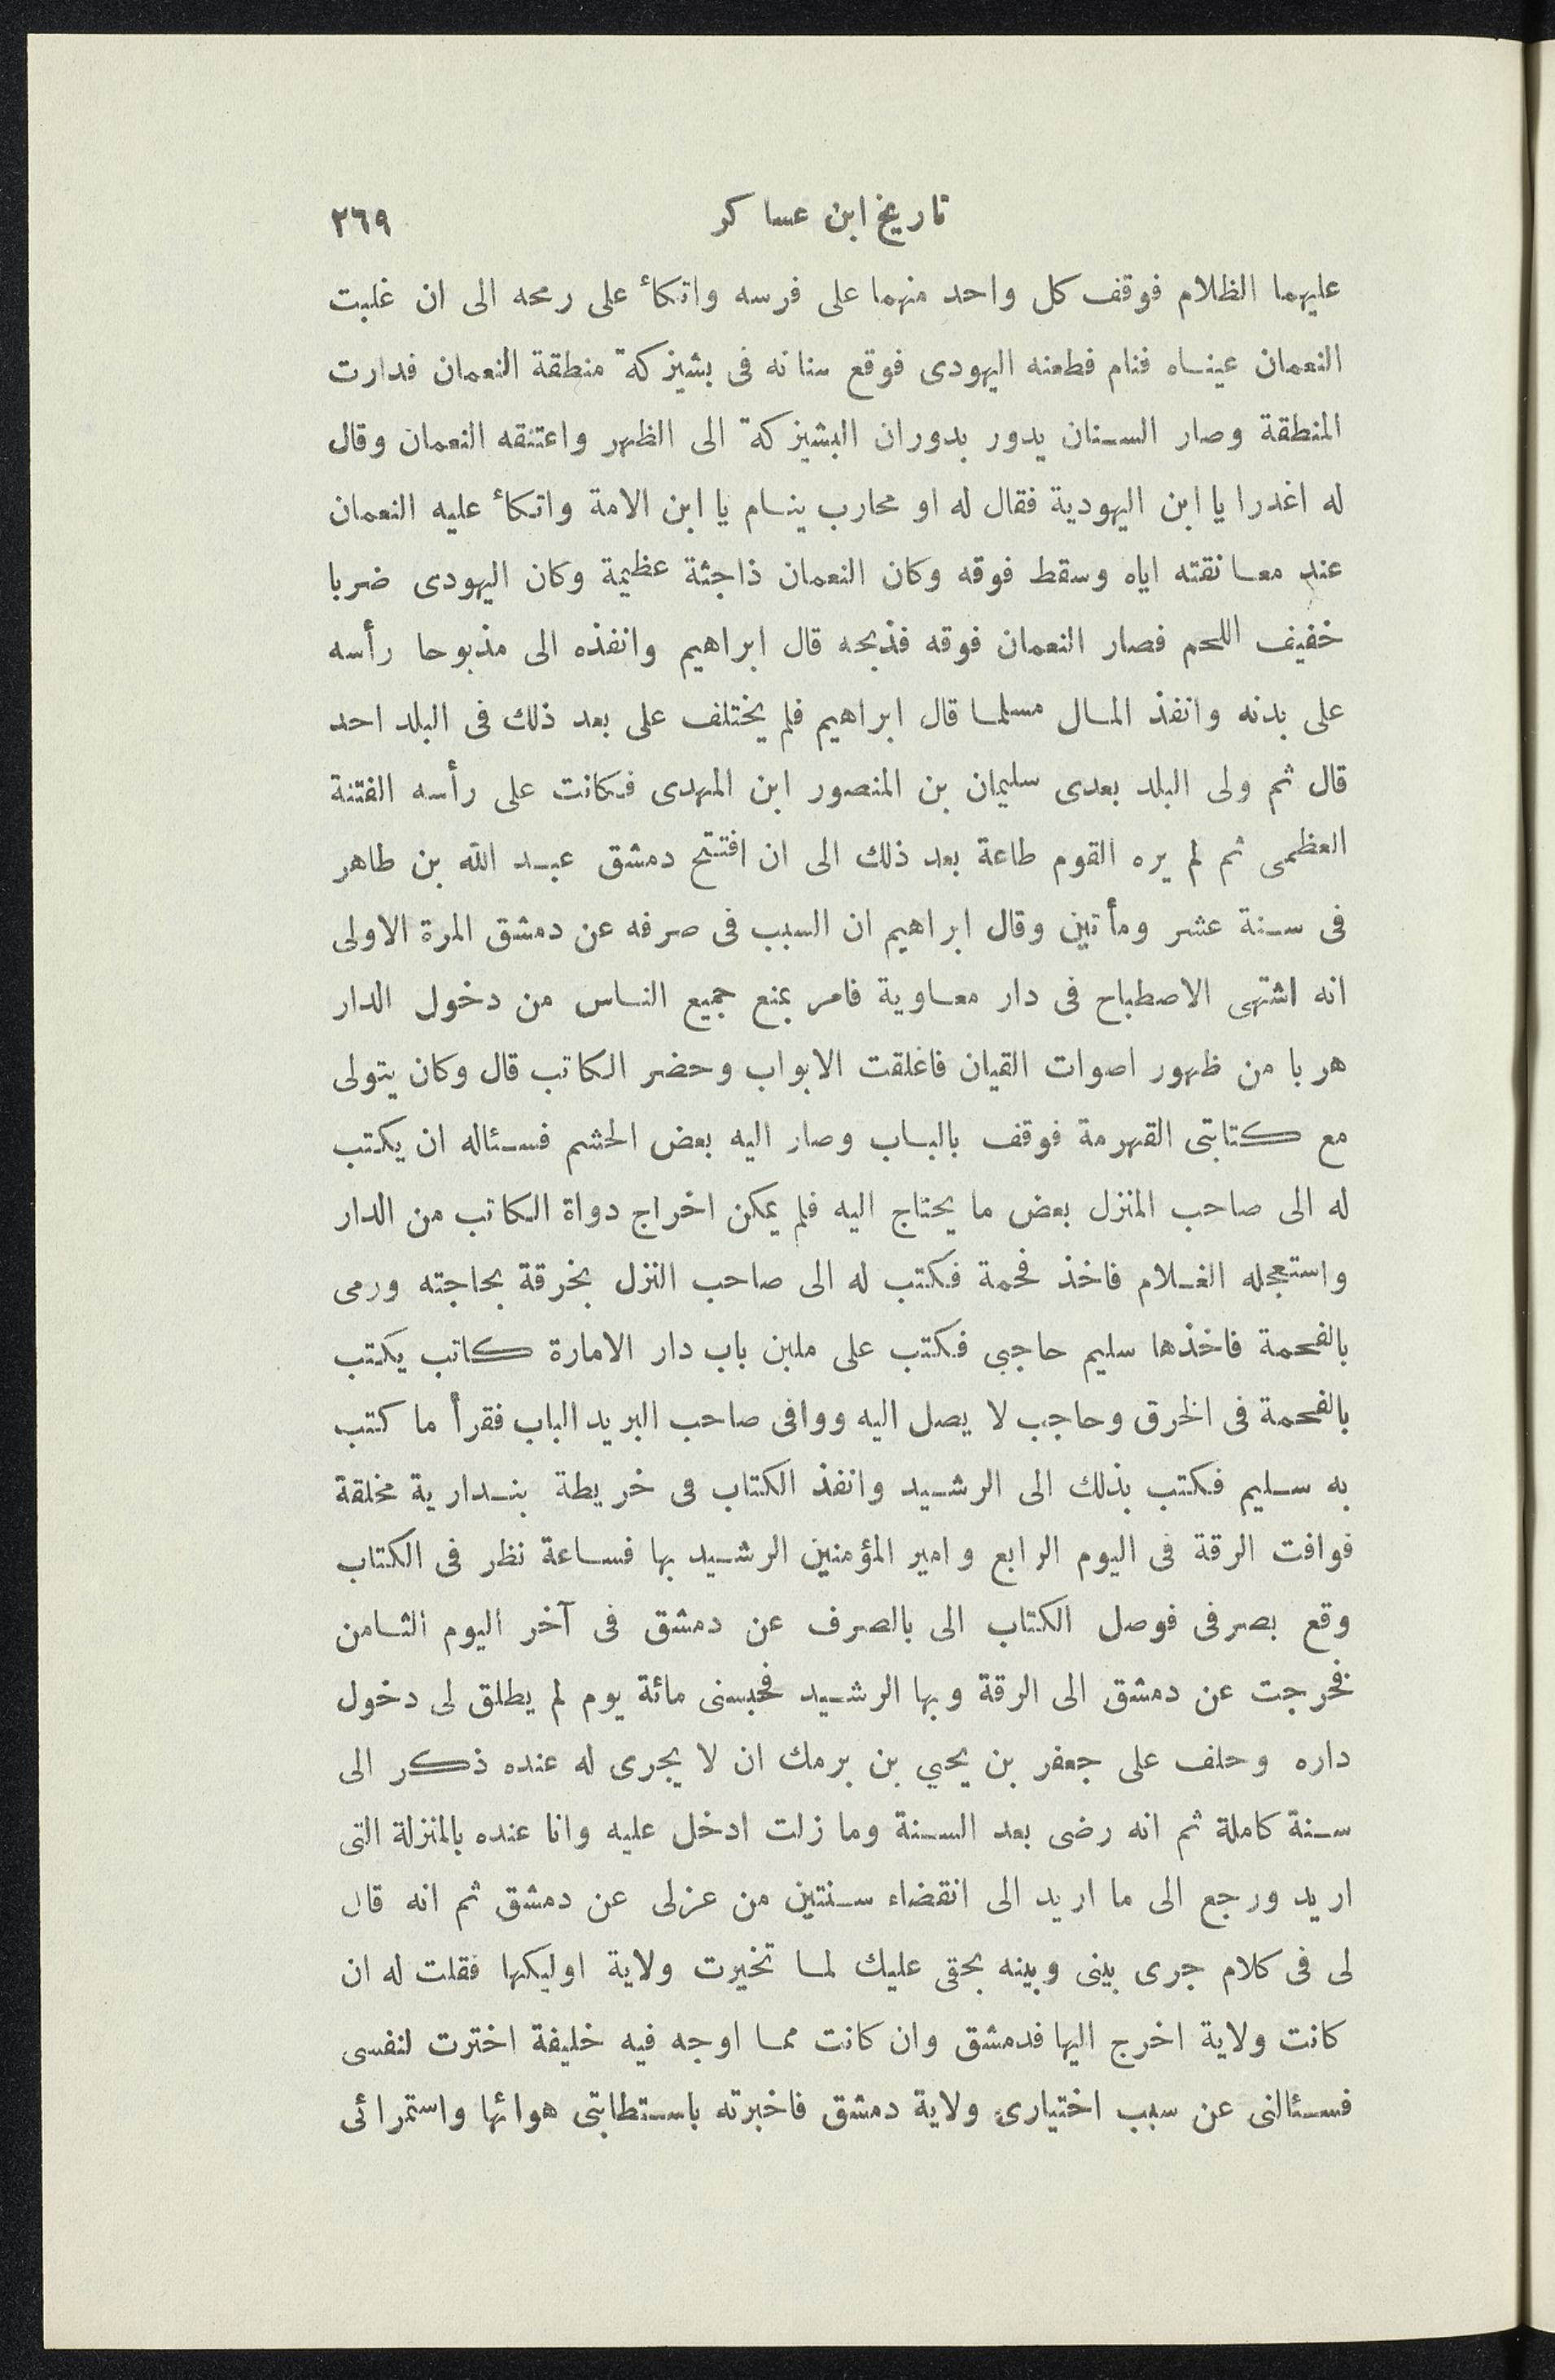 تاريخ ابن عساكر ٢٦٩
عليهما الظلام فوقف كل واحد منهما على فرسه واتكأ على رمحه الى ان غلبت
النعمان عيناه فنام فطعنه اليهودى فوقع سنانه فى بشيزكة منطقة النعمان فدارت
المنطقة وصار السنان يدور بدوران البشيزكة الى الظهر واعتنقه النعمان وقال
له اغدرا يا ابن اليهودية فقال له او محارب ينام يا ابن الامة واتكأ عليه النعمان
عند معانقته اياه وسقط فوقه وكان النعمان ذاجثة عظيمة وكان اليهودى ضربا
خفيف اللحم فصار النعمان فوقه فذبحه قال ابراهيم وانفذه الى مذبوحا رأسه
على بدنه وانفذ المال مسلما قال ابراهيم فلم يختلف على بعد ذلك فى البلد احد
قال ثم ولى البلد بعدى سليمان بن المنصور ابن المهدى فكانت على رأسه الفتنة
العظمى ثم لم يره القوم طاعة بعد ذلك الى ان افتتح دمشق عبد الله بن طاهر
فى سنة عشر ومأتين وقال ابراهيم ان السبب فى صرفه عن دمشق المرة الاولى
انه اشتهى الاصطباح فى دار معاوية فامر بمنع جميع الناس من دخول الدار
هربا من ظهور اصوات القيان فاغلقت الابواب وحضر الكاتب قال وكان يتولى
مع كتابتى القهرمة فوقف بالباب وصار اليه بعض الحشم فسئاله ان يكتب
له الى صاحب المنزل بعض ما يحتاج اليه فلم يمكن اخراج دواة الكاتب من الدار
واستعجله الغلام فاخذ فحمة فكتب له الى صاحب النزل بخرقة بحاجته ورمى
بالفحمة فاخذها سليم حاجبى فكتب على ملبن باب دار الامارة كاتب يكتب
بالفحمة فى الخرق وحاجب لا يصل اليه ووافى صاحب البريد الباب فقرأ ما كتب
به سليم فكتب بذلك الى الرشيد وانفذ الكتاب فى خريطة بندارية مخلقة
فوافت الرقة فى اليوم الرابع وامير المؤمنين الرشيد بها فساعة نظر فى الكتاب
وقع بصرفى فوصل الكتاب الى بالصرف عن دمشق فى آخر اليوم الثامن
فخرجت عن دمشق الى الرقة وبها الرشيد فحبسنى مائة يوم لم يطلق لى دخول
داره وحلف على جعفر بن يحيي بن برمك ان لا يجرى له عنده ذكر الى
سنة كاملة ثم انه رضى بعد السنة وما زلت ادخل عليه وانا عنده بالمنزلة التى
اريد ورجع الى ما اريد الى انقضاء سنتين من عزلى عن دمشق ثم انه قال
لى فى كلام جرى بينى وبينه بحقى عليك لما تخيرت ولاية اوليكها فقلت له ان
كانت ولاية اخرج اليها فدمشق وان كانت مما اوجه فيه خليفة اخترت لنفسى
فسئالنى عن سبب اختيارى ولاية دمشق فاخبرته باستطابتى هوائها واستمرائى